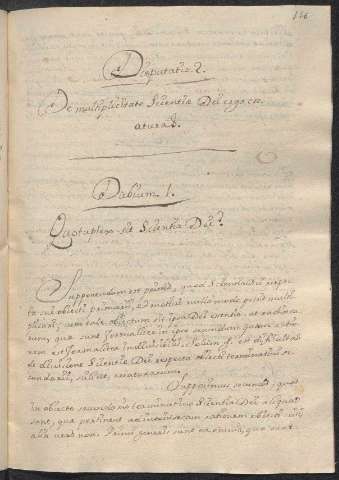 146
Disputatio 2.
De multiplicitate Scientiæ Dei erga cre
aturas.
Dubium 1.
Quotuplex sit Scientia Dei?
Supponendum est primo, quod Scientia Dei respec
tu sui objecti primarii, ad nullum modo possit multi
plicari; cum tale objectum sit ipsa Dei essentia, et
sunt formaliter in ipso secundum quam ratio
nem est formalitas indivisibilis. Solum est difficultas
de divisione Scientiæ Dei respectu objecti terminativi se
cundarii, scilicet, creaturarum.
Supponimus secundo: quod
in objecto secundario terminativo Scientiæ Dei aliqua
sunt, quæ pertinent ad rationem objecti
alia vero non. Primi generis sunt ea omnia, quæ